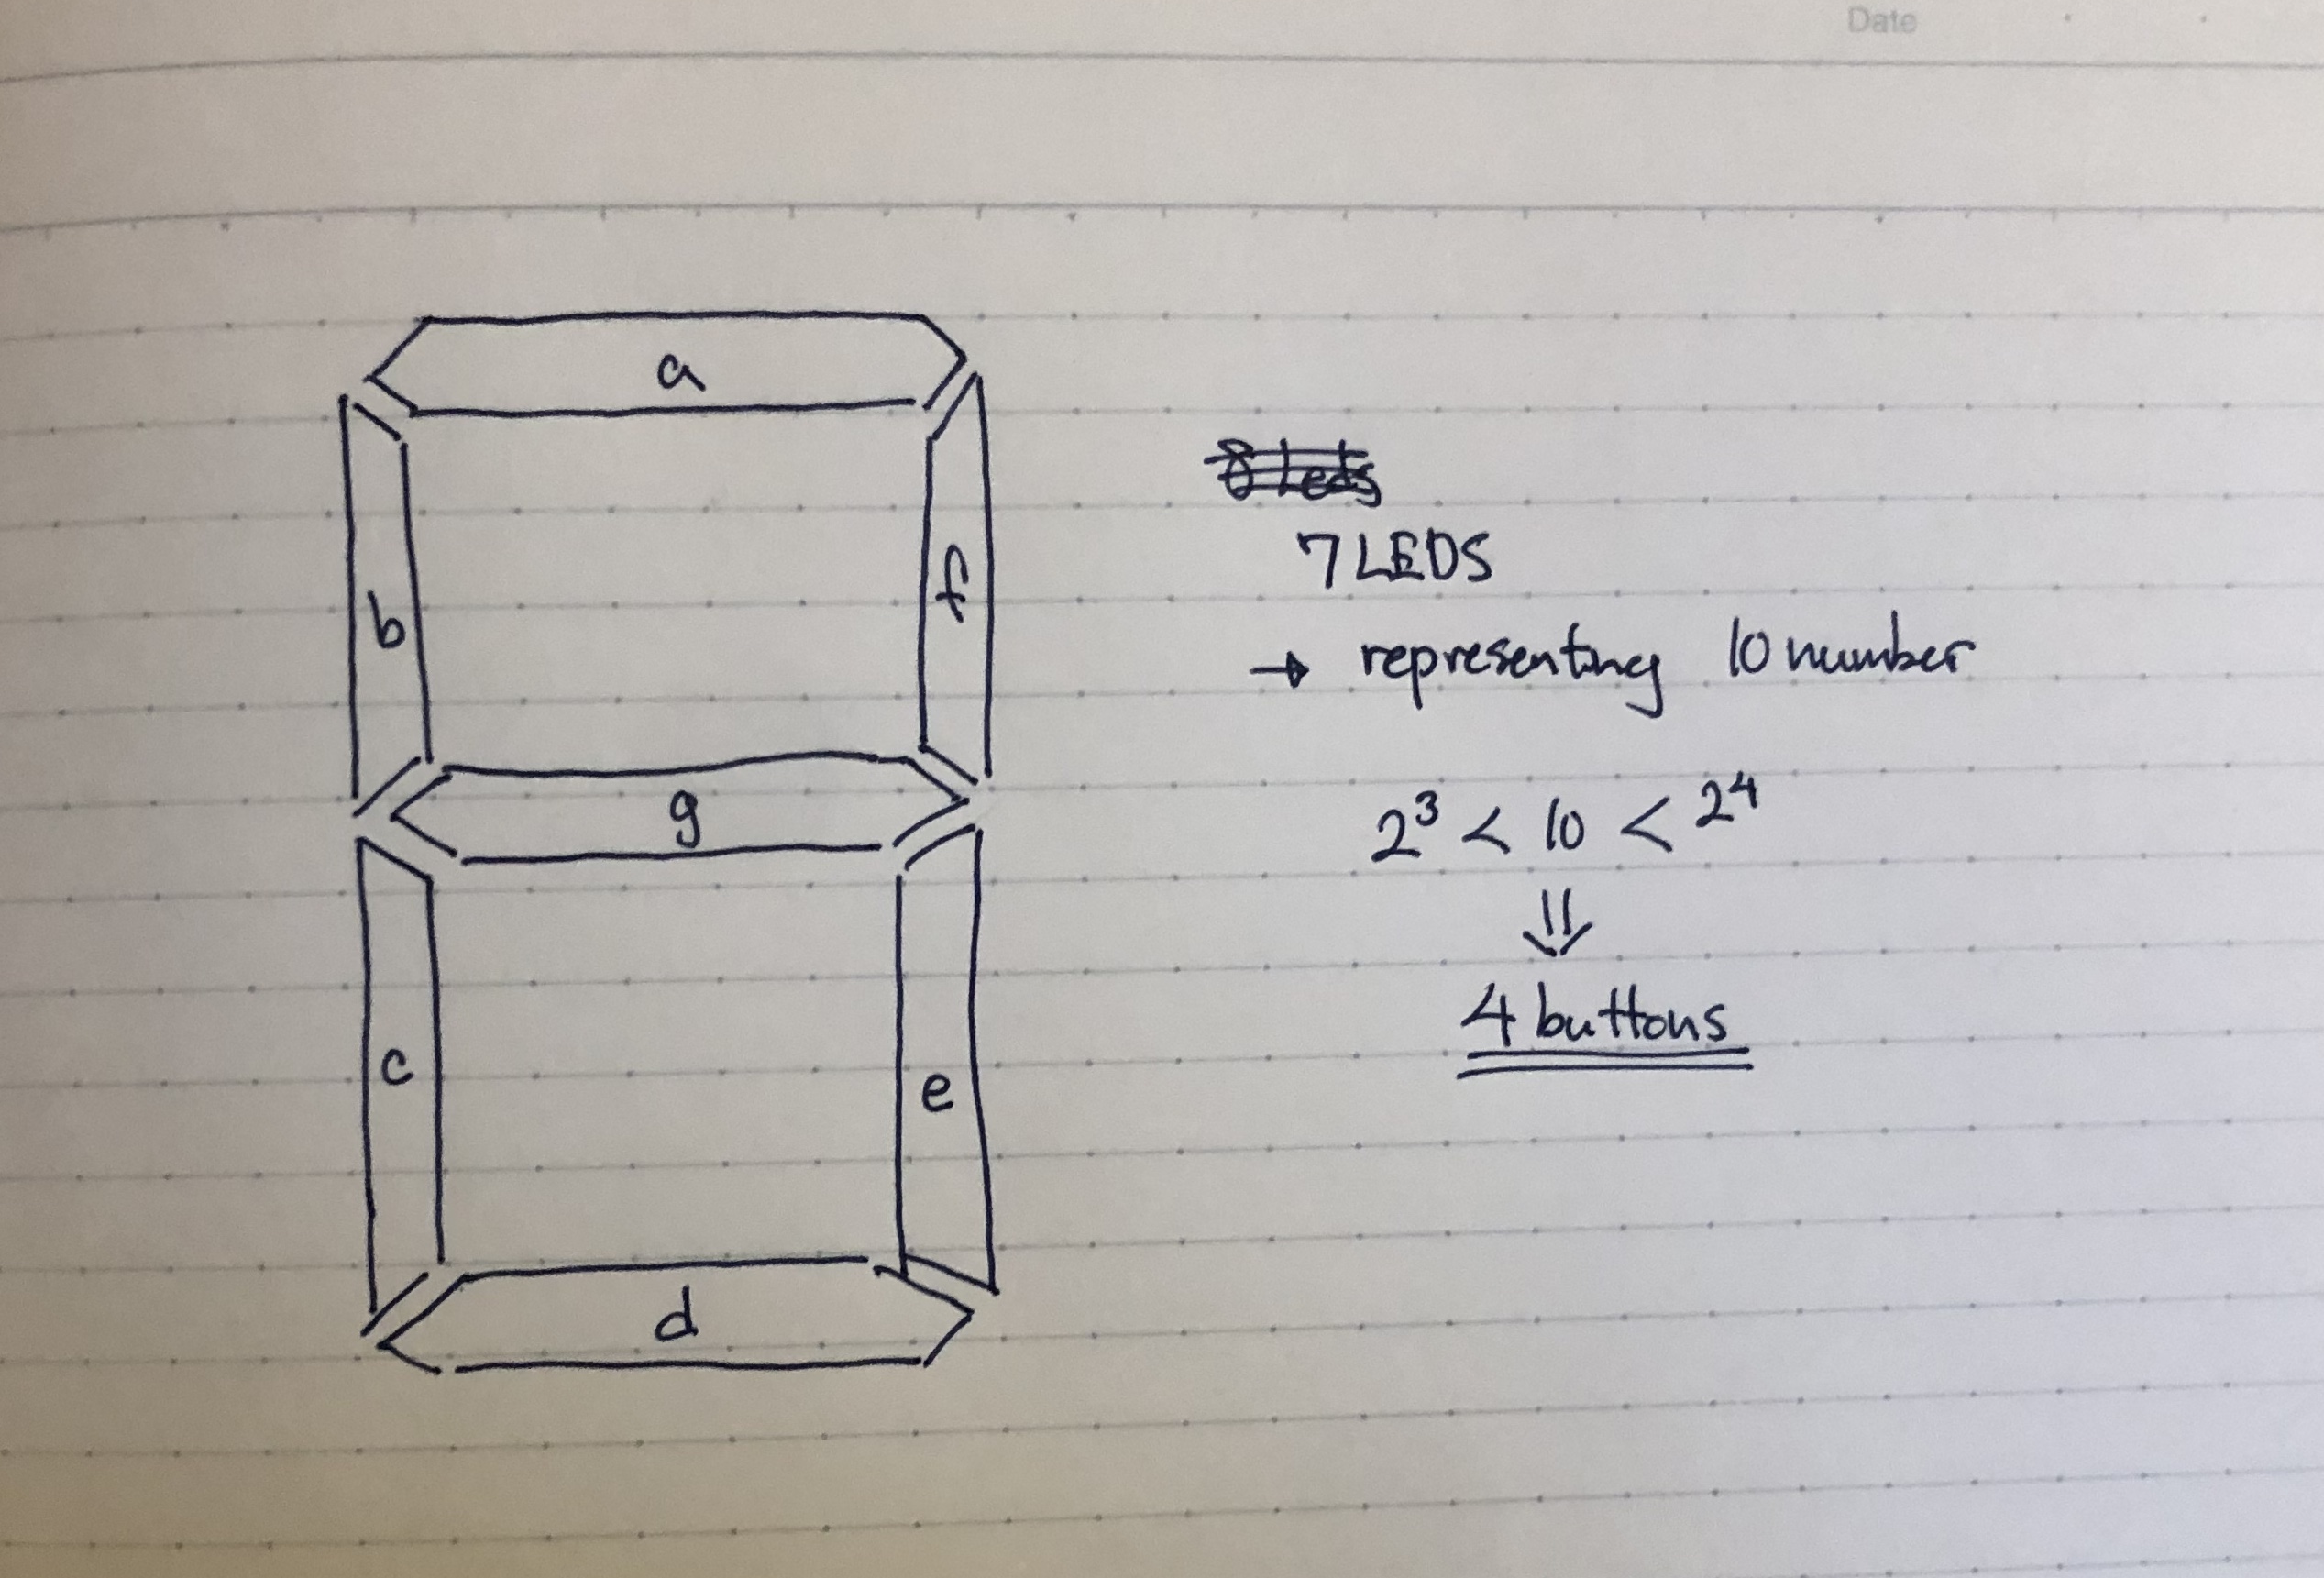 Date
a
b
f
g
c
e
d
8 Leds
7 LEDS
→ representing 10 number
2³ < 10 < 2⁴
⇓
4 buttons